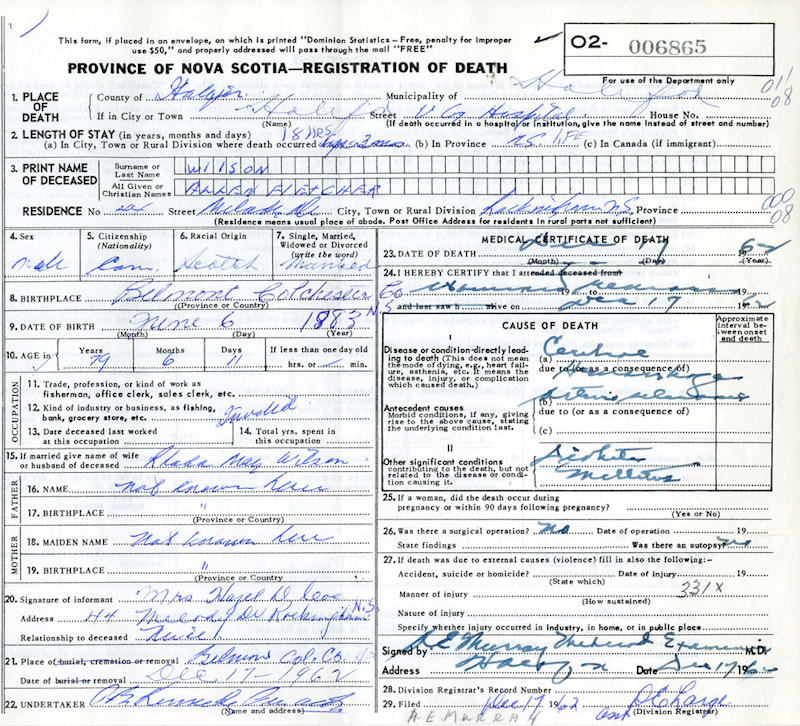 This form, if placed in an envelope, on which is printed "Dominion Statistics – Free, penalty for improper
use $50," and properly addressed will pass through the mail "FREE"
O2- 006865
PROVINCE OF NOVA SCOTIA—REGISTRATION OF DEATH
For use of the Department only
011
08
1. PLACE OF DEATH
County of Halifax Municipality of Halifax
If in City or Town Halifax Street V G Hospital House No.
(Name) (If death occurred in a hospital or institution, give the name instead of street and number)
2. LENGTH OF STAY (in years, months and days) 18 hrs
(a) In City, Town or Rural Division where death occurred (b) In Province N.S. life (c) In Canada (if immigrant)
3. PRINT NAME OF DECEASED
Surname or Last Name WILSON
All Given or Christian Names ALLEN FLETCHER
000
08
RESIDENCE No Street Melody Dr City, Town or Rural Division Rockingham N.S. Province
(Residence means usual place of abode. Post Office Address for residents in rural parts not sufficient)
4. Sex
Male
5. Citizenship (Nationality)
Can.
6. Racial Origin
Scotch
7. Single, Married, Widowed or Divorced (write the word)
Married
8. BIRTHPLACE Belmont Colchester Co N.S.
(Province or Country)
9. DATE OF BIRTH June 6 1883
(Month) (Day) (Year)
10. AGE in
Years Months Days If less than one day old
79 6 11 hrs. or min.
OCCUPATION
11. Trade, profession, or kind of work as
fisherman, office clerk, sales clerk, etc.
12. Kind of industry or business, as fishing,
bank, grocery store, etc.
13. Date deceased last worked
at this occupation
14. Total yrs. spent in
this occupation
15. If married give name of wife
or husband of deceased May Wilson
FATHER
16. NAME Not known here
17. BIRTHPLACE "
(Province or Country)
MOTHER
18. MAIDEN NAME Not known here
19. BIRTHPLACE "
Province or Country
20. Signature of informant Mrs Hazel D.
Address 44 Melody Dr Rockingham N.S.
Relationship to deceased Niece
21. Place of burial, cremation or removal Belmont Col. Co N.S.
Date of burial or removal Dec 17-1962
22. UNDERTAKER
(Name and address)
MEDICAL CERTIFICATE OF DEATH
23. DATE OF DEATH Dec 17 62
(Month) (Day) (Year)
24. I HEREBY CERTIFY that I attended deceased from
19 to 19
and last saw h alive on Dec 17 1962
CAUSE OF DEATH
Approximate interval between onset and death
I
Disease or condition directly leading to death (This does not mean the mode of dying, e.g., heart failure, asthenia, etc. It means the disease, injury, or complication which caused death.)
(a) Cerebral
due to (or as a consequence of)
Hemorrhage
Antecedent causes
Morbid conditions, if any, giving rise to the above cause, stating the underlying condition last.
(b) Arterio sclerosis
due to (or as a consequence of)
(c)
II
Other significant conditions
contributing to the death, but not related to the disease or condition causing it.
Diabetes
Mellitus
25. If a woman, did the death occur during
pregnancy or within 90 days following pregnancy?
(Yes or No)
26. Was there a surgical operation? No Date of operation 19
State findings Was there an autopsy? No
27. If death was due to external causes (violence) fill in also the following:-
Accident, suicide or homicide? Date of injury 19
(State which)
Manner of injury 331X
(How sustained)
Nature of injury
Specify whether injury occurred in industry, in home, or in public place
Signed by A E Murray Medical Examiner M.D.
Address Halifax Date Dec 17 62
28. Division Registrar's Record Number
29. Filed Dec 17 1962
(Division Registrar)
A E MURRAY